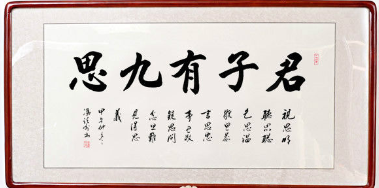 君子有九思
視思明
聽思聰
色思溫
貌思恭
言思忠
事思敬
疑思問
忿思難
見得思
義
甲午